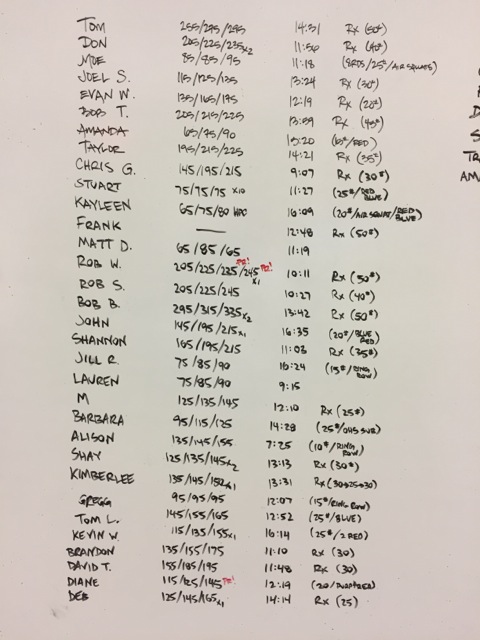 TOM 255/295/295 14:31 Rx (50#)
DON 205/225/235x2 11:56 Rx (40#)
MOE 85/85/95 11:18 (8RDS/25#/AIR SQUATS)
JOEL S. 115/125/135 13:24 Rx (30#)
EVAN W. 135/165/175 12:19 Rx (20#)
BOB T. 205/215/225 13:59 Rx (45#)
AMANDA 65/75/90 15:20 (15#/RED)
TAYLOR 195/215/225 14:21 Rx (35#)
CHRIS G. 145/195/215 9:07 Rx (30#)
STUART 75/75/75 x10 11:27 (25#/RED BLUE)
KAYLEEN 65/75/80 HPC 16:09 (20#/AIR SQUAT/RED BLUE)
FRANK — 12:48 Rx (50#)
MATT D. 65/85/65 11:19
ROB W. 205/225/235 PR!/245 x1 PR! 10:11 Rx (50#)
ROB S. 205/225/245 10:27 Rx (40#)
BOB B. 295/315/335x2 13:42 Rx (50#)
JOHN 145/195/215x1 16:35 (20#/BLUE RED)
SHANNON 165/195/215 11:03 Rx (35#)
JILL R. 75/85/90 16:24 (15#/RING ROW)
LAUREN 75/85/90 9:15
M 125/135/145 12:10 Rx (25#)
BARBARA 95/115/125 14:28 (25#/045 SUB)
ALISON 135/145/155 7:25 (10#/RING ROW)
SHAY 125/135/145x2 13:13 Rx (30#)
KIMBERLEE 135/145/152x1 13:31 Rx
GREGG 95/95/95 12:07 (15#/RING ROW)
TOM L. 145/155/165 12:52 (25#/BLUE)
KEVIN W. 115/135/155x1 16:14 (25#/2 RED)
BRANDON 135/155/175 11:10 Rx (30)
DAVID T. 155/185/195 11:48 Rx (30)
DIANE 115/125/145 PR! 12:19
DEB 125/145/165x1 14:14 Rx (25)